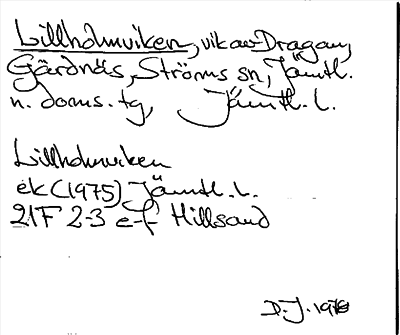 Lillholmviken, vik av Dragan,
Gärdnäs, Ströms sn, Jämtl.
n. doms. tg, Jämtl. l.
Lillholmviken
ek (1975) Jämtl. l.
21F 2-3 e-f Hillsand
D. J. 1978